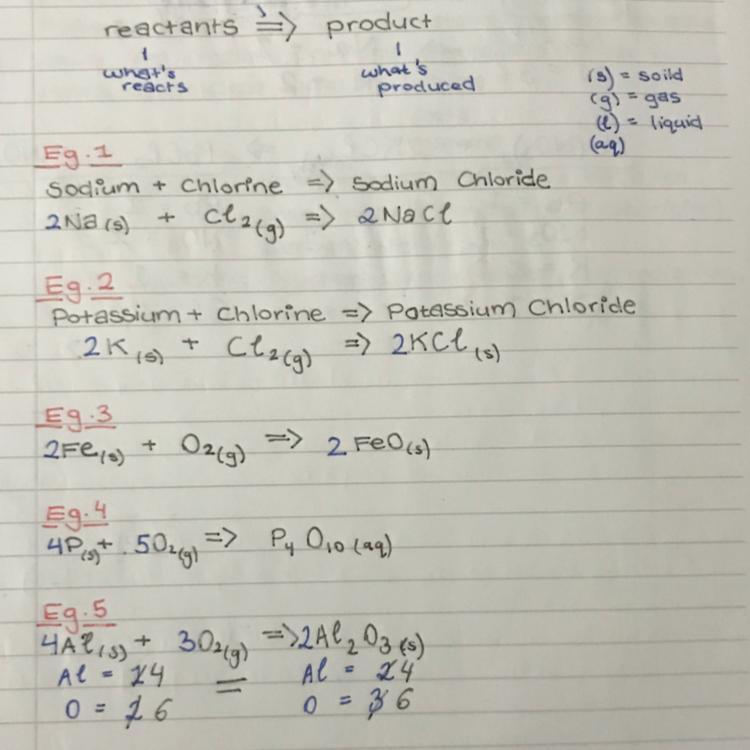 reactants => product
what's reacts
what's produced
(s) = soild
(g) = gas
(l) = liquid
(aq)
Eg.1
Sodium + Chlorine => Sodium Chloride
2Na(s) + Cl₂(g) => 2NaCl
Eg.2
Potassium + Chlorine => Potassium Chloride
2K(s) + Cl₂(g) => 2KCl(s)
Eg.3
2Fe(s) + O₂(g) => 2FeO(s)
Eg.4
4P(s) + 5O₂(g) => P₄O₁₀(aq)
Eg.5
4Al(s) + 3O₂(g) => 2Al₂O₃(s)
Al = 4 = Al = 4
O = 6 O = 6